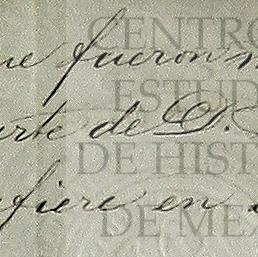 CENTRO
que fueron
ESTUD
arte de D.
DE HIST
fiere en
DE MEX